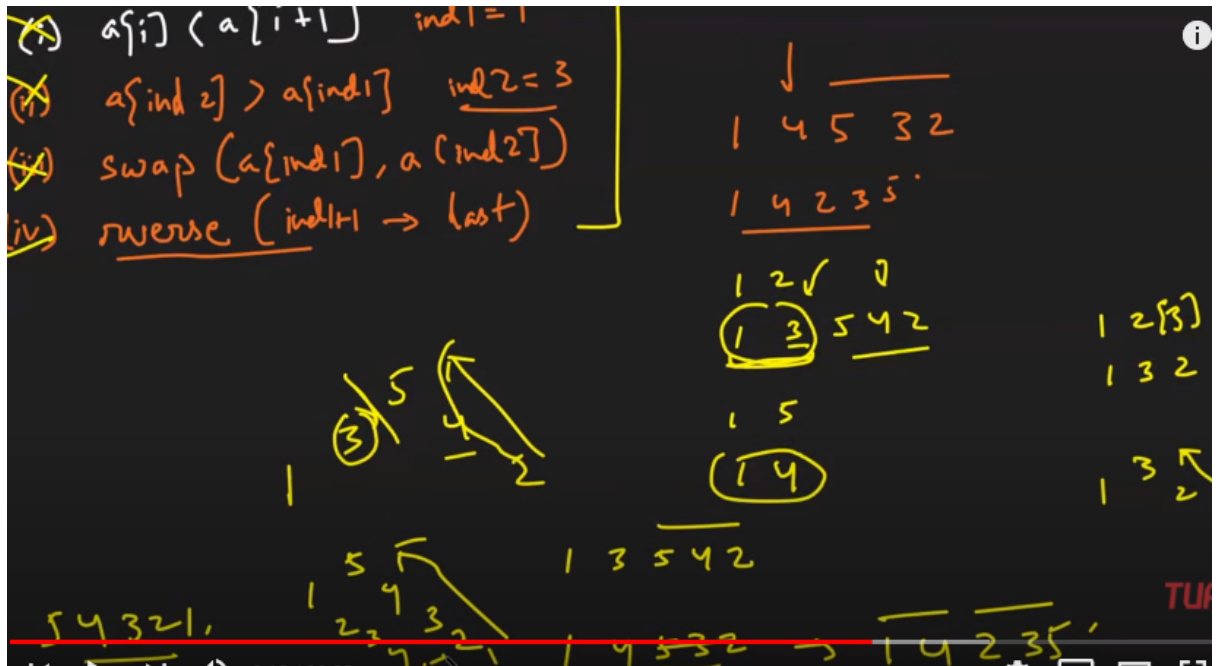 (i) a[i] < a[i+1] ind1 = 1
(ii) a[ind2] > a[ind1] ind2 = 3
(iii) swap (a[ind1], a[ind2])
(iv) rverse (ind1+1 → last)
1 4 5 3 2
1 4 2 3 5
1 2
1 3 5 4 2
1 5
1 4
1 2[3]
1 3 2
1 3 2
1 3 5 4 2
1 3 5 4 2
5 4 3 2 1,
1 5 4
2 3 3
1 4 5 3 2 → 1 4 2 3 5
TUF